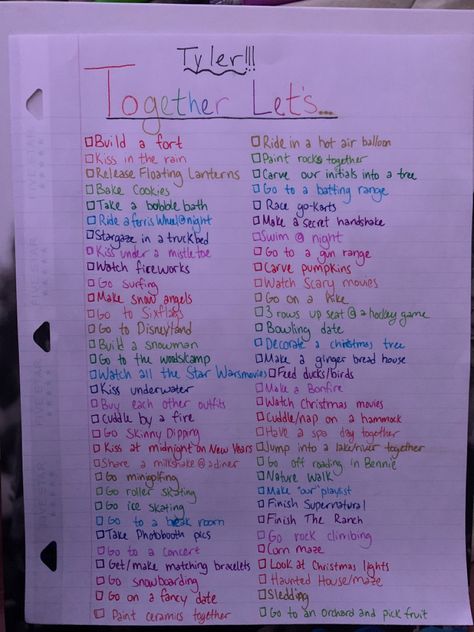 Tyler!!!
Together Let's...
☐ Build a fort
☐ Kiss in the rain
☐ Release Floating Lanterns
☐ Bake Cookies
☐ Take a bobble bath
☐ Ride a ferris Wheel @ night
☐ Stargaze in a truck bed
☐ Kiss under a mistletoe
☐ Watch fireworks
☐ Go surfing
☐ Make snow angels
☐ Go to Sixflags
☐ Go to Disneyland
☐ Build a snowman
☐ Go to the woods/camp
☐ Watch all the Star Wars movies
☐ Kiss underwater
☐ Buy each other outfits
☐ Cuddle by a fire
☐ Go Skinny Dipping
☐ Kiss at midnight on New Years
☐ Share a milkshake @ a diner
☐ Go minigolfing
☐ Go roller skating
☐ Go ice skating
☐ Go to a break room
☐ Take Photobooth pics
☐ Go to a concert
☐ Get/make matching bracelets
☐ Go snowboarding
☐ Go on a fancy date
☐ Paint ceramics together
☐ Ride in a hot air balloon
☐ Paint rocks together
☐ Carve our initials into a tree
☐ Go to a batting range
☐ Race go-karts
☐ Make a secret handshake
☐ Swim @ night
☐ Go to a gun range
☐ Carve pumpkins
☐ Watch Scary movies
☐ Go on a hike
☐ 3 rows up seat @ a hockey game
☐ Bowling date
☐ Decorate a christmas tree
☐ Make a ginger bread house
☐ Feed ducks/birds
☐ Make a Bonfire
☐ Watch Christmas movies
☐ Cuddle/nap on a hammock
☐ Have a spa day together
☐ Jump into a lake/river together
☐ Go off roading in Bennie
☐ Nature walk
☐ Make "our" playlist
☐ Finish Supernatural
☐ Finish The Ranch
☐ Go rock climbing
☐ Corn maze
☐ Look at Christmas lights
☐ Haunted House/maze
☐ Sledding
☐ Go to an Orchard and pick fruit